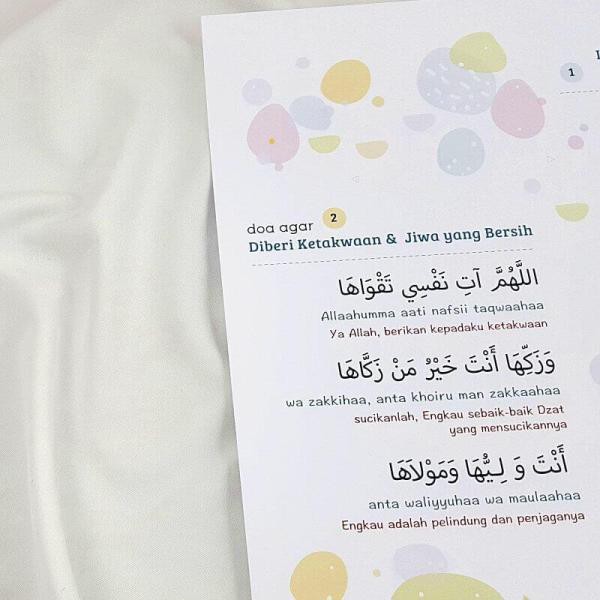 1
doa agar 2
Diberi Ketakwaan & Jiwa yang Bersih
اللَّهُمَّ آتِ نَفْسِي تَقْوَاهَا
Allaahumma aati nafsii taqwaahaa
Ya Allah, berikan kepadaku ketakwaan
وَزَكِّهَا أَنْتَ خَيْرُ مَنْ زَكَّاهَا
wa zakkihaa, anta khoiru man zakkaahaa
sucikanlah, Engkau sebaik-baik Dzat
yang mensucikannya
أَنْتَ وَ لِيُّهَا وَمَوْلاَهَا
anta waliyyuhaa wa maulaahaa
Engkau adalah pelindung dan penjaganya